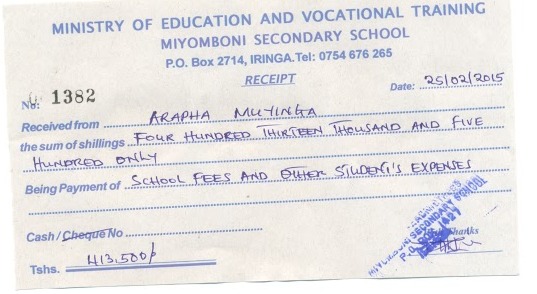 MINISTRY OF EDUCATION AND VOCATIONAL TRAINING
MIYOMBONI SECONDARY SCHOOL
P.O. Box 2714, IRINGA.Tel: 0754 676 265
RECEIPT
Date: 25/02/2015
No: 1382
Received from ARAPHA MUYINGA
the sum of shillings FOUR HUNDRED THIRTEEN THOUSAND AND FIVE
HUNDRED ONLY
Being Payment of SCHOOL FEES AND OTHER STUDENT'S EXPENSES
Cash / Cheque No
Thanks
Tshs. 413,500/
SECONDARY SCHOOL